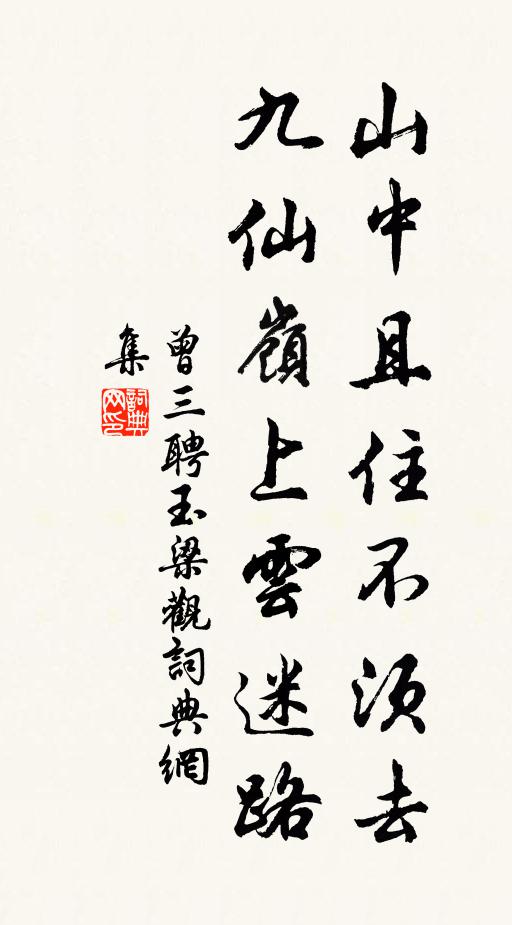 山中且住不須去
九仙嶺上雲迷路
曾三聘玉梁觀詞典網
集
詞典網印